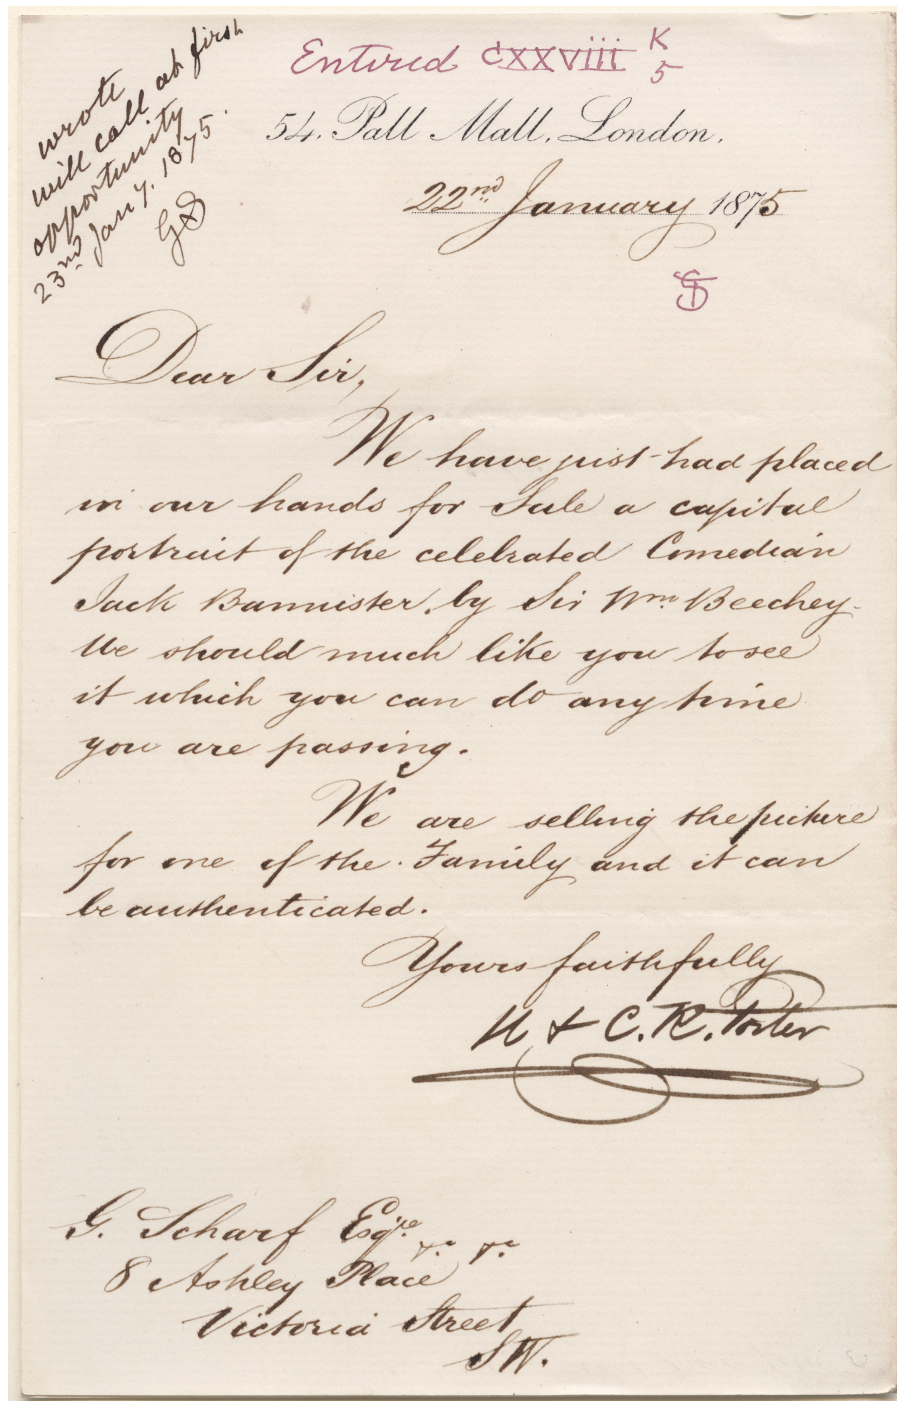 wrote
will call at first
opportunity
23nd Jany. 1875.
GS
Entered CXXViii K
5
54. Pall Mall. London.
22nd January 1875
GS
Dear Sir,
We have just had placed
in our hands for Sale a capital
portrait of the celebrated Comedian
Jack Bannister, by Sir Wm. Beechey.
We should much like you to see
it which you can do any time
you are passing.
We are selling the picture
for one of the Family and it can
be authenticated.
Yours faithfully
H & C. R. Porter
G. Scharf Esqre. &c. &c.
8 Ashley Place
Victoria Street
SW.